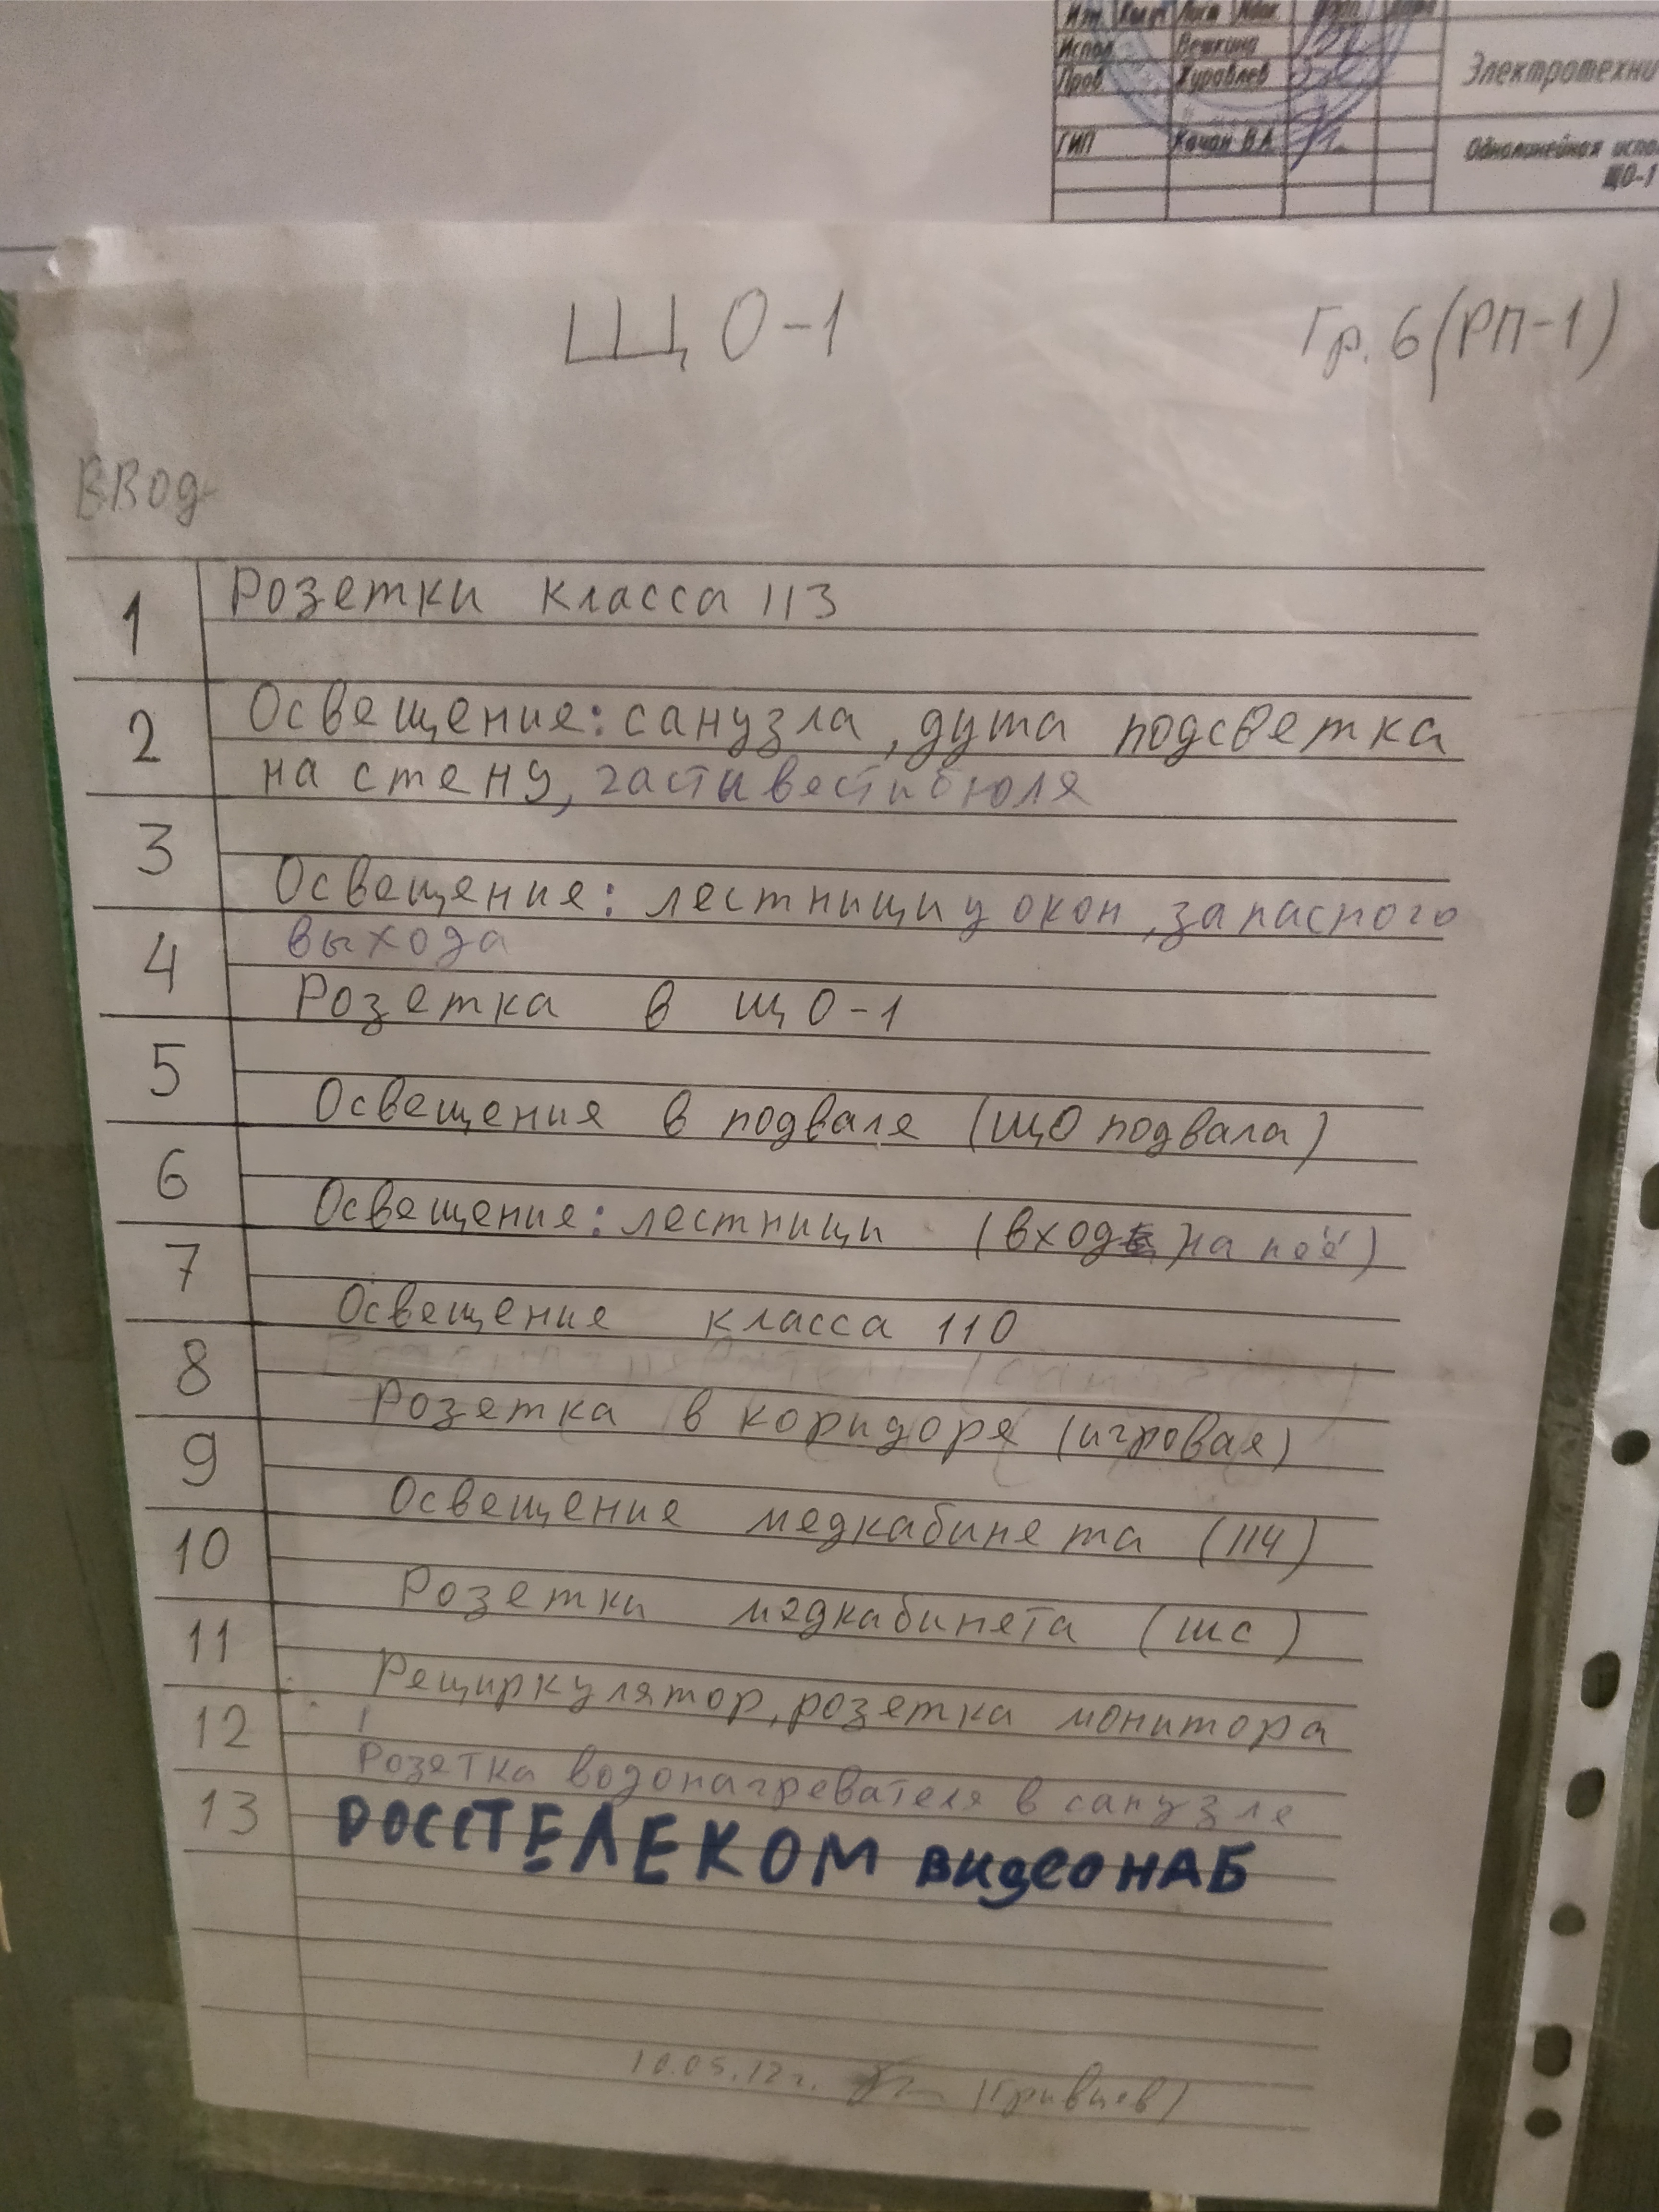 Изм. Кол.уч Лист №док. Подп. Дата
Испол. Вешкина
Пров Журавлев
Электротехни
ГИП Качан В.А.
Однолинейная испо
ЩО-1
ЩО-1 Гр. 6 (РП-1)
ВВод
1 Розетки класса 113
2 Освещение: санузла, душа подсветка
на стену, часты вестибюля
3 Освещение: лестницы у окон, запасного
выхода
4 Розетка в щО-1
5 Освещения в подвале (щО подвала)
6 Освещение: лестницы (вход на неё)
7 Освещение класса 110
8 Розетка в коридоре (игровая)
9 Освещение медкабинета (114)
10 Розетки медкабинета (шс)
11 Рециркулятор, розетка монитора
12 Розетка водонагревателя в санузле
13 РОССТЕЛЕКОМ видеоНАБ
10.05.12г. (Гривцев)